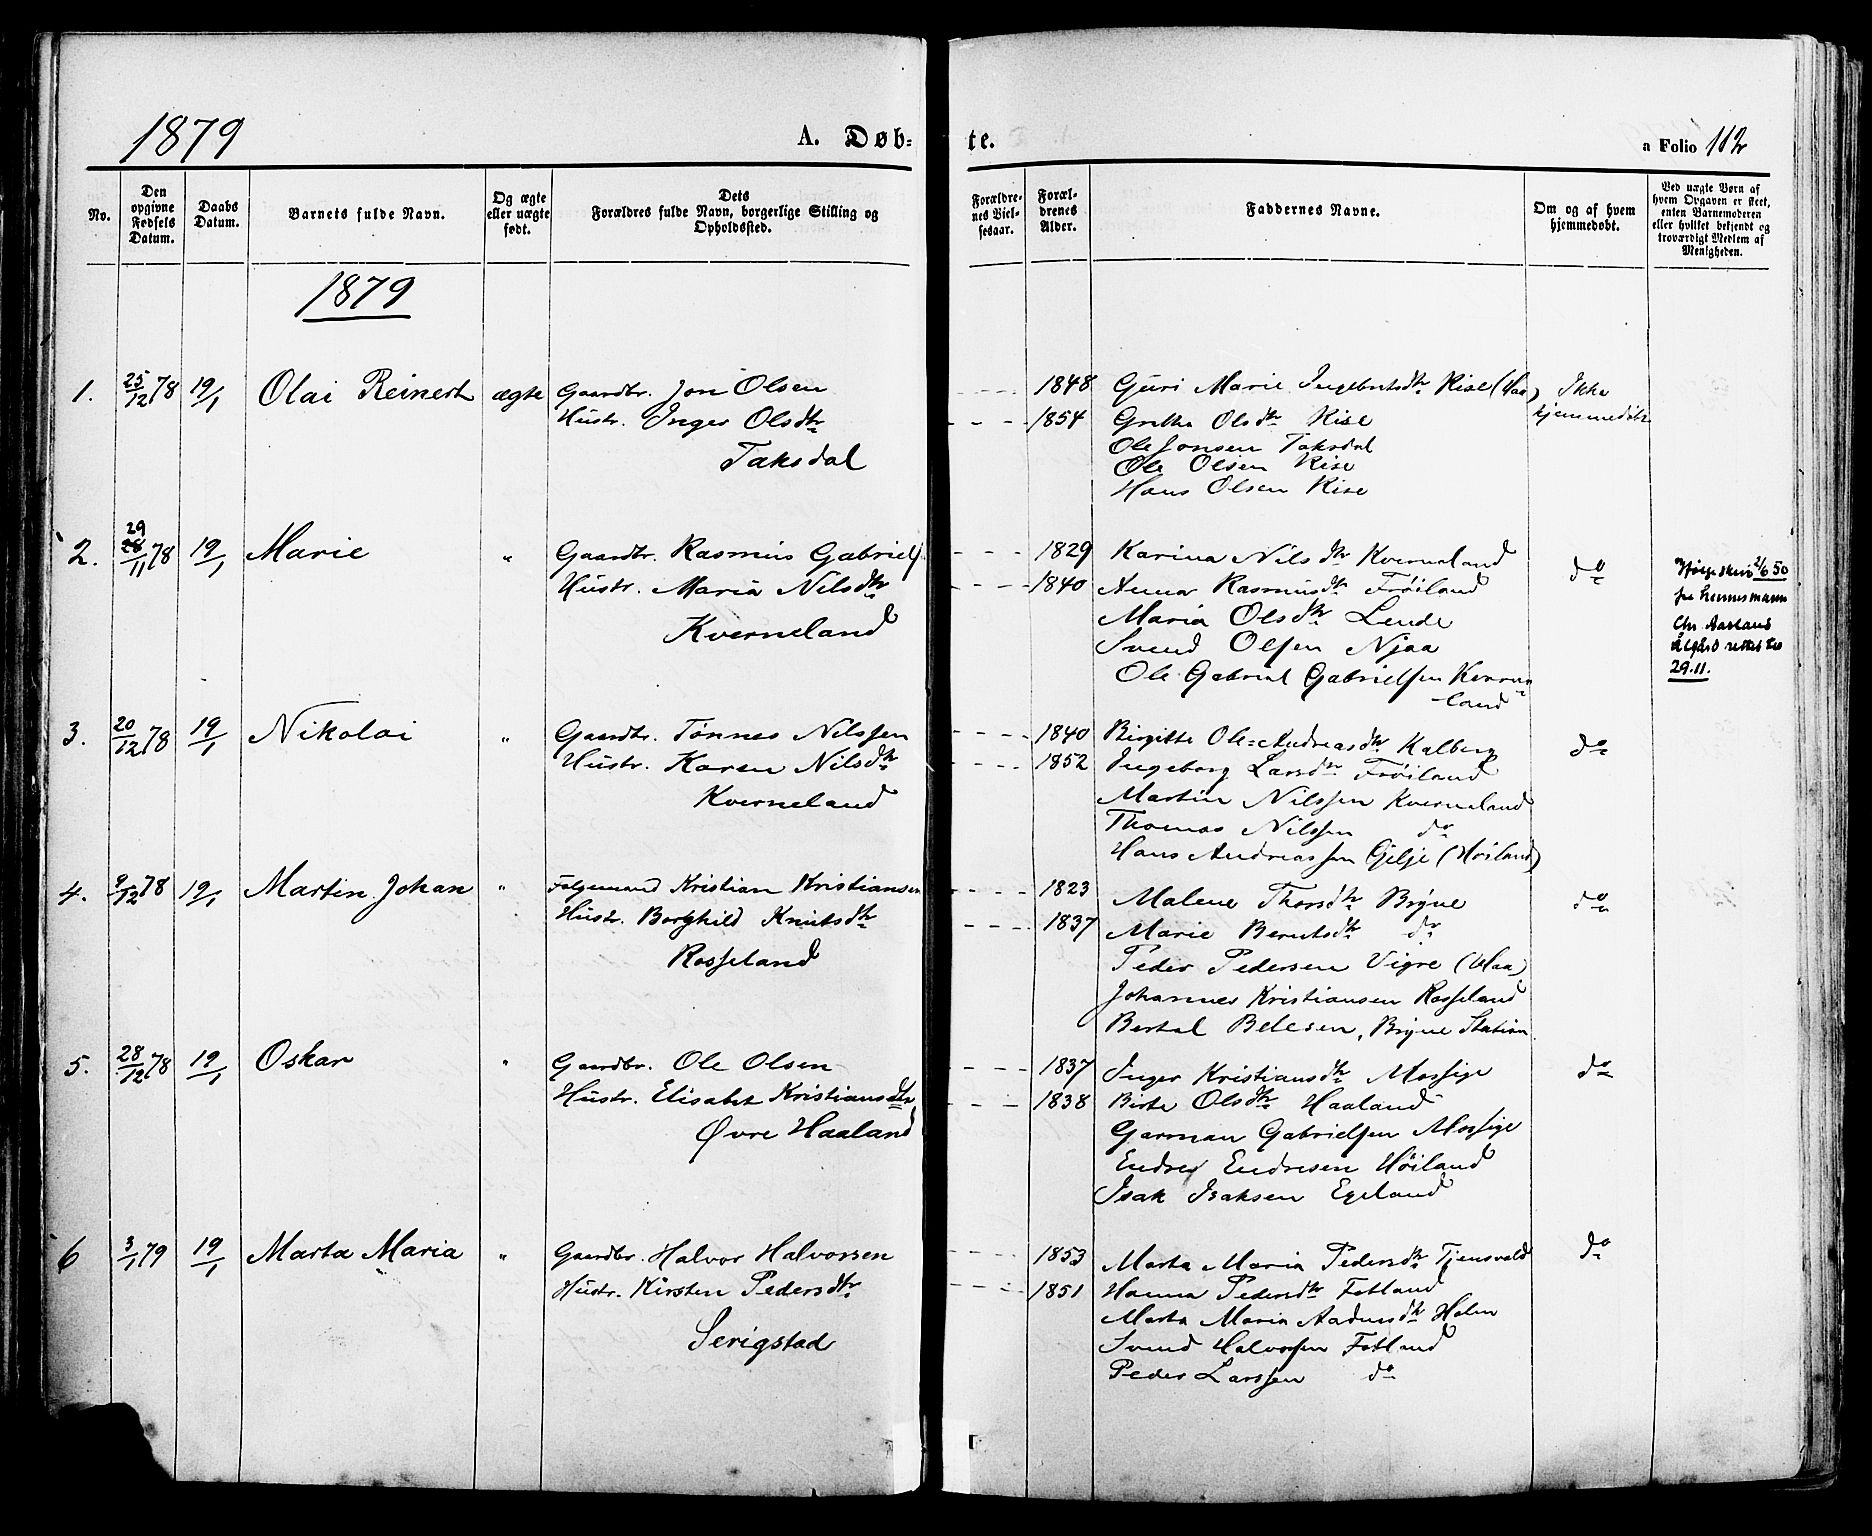 1879
A. Døb-
te.
a Folio 112
No.
Den opgivne Fødsels Datum.
Daabs Datum.
Barnets fulde Navn.
Og ægte eller uægte født.
Dets Forældres fulde Navn, borgerlige Stilling og Opholdssted.
Forældrenes Vielsesaar.
Forældrenes Alder.
Faddernes Navne.
Om og af hvem hjemmedøbt.
Ved uægte Børn af hvem Opgaven er skeet, enten Barnemoderen eller hvilket bekjendt og troværdigt Medlem af Menigheden.
1879
1. 25/12 78 19/1 Olai Reinert ægte Gaardbr. Jon Olsen
Hustr. Inger Olsdtr
Taksdal
1848 Guri Marie Ingebretsdtr Rise (Haa) Ikke
1854 Grethe Olsdtr Rise hjemmedøbt
Ole Jonsen Taksdal
Ole Olsen Rise
Hans Olsen Rise
29
2. 28/11 78 19/1 Marie " Gaardbr. Rasmus Gabriels.
Hustr. Maria Nilsdtr
Kverneland
1829 Karina Nilsdtr Kverneland do
1840 Anna Rasmusdtr Frøiland
Maria Olsdtr Lende
Svend Olsen Njaa
Ole Gabriel Gabrielsen Kverne-
land
Ifølge skriv 2/6 50
fra Lensmann
Chr. Aarland
Ålgård rettet til
29.11.
3. 20/12 78 19/1 Nikolai " Gaardbr. Tønnes Nilssen
Hustr. Karen Nilsdtr
Kverneland
1840 Birgitte Ole-Andreasdtr Kalberg do
1852 Ingeborg Larsdtr Frøiland
Martin Nilssen Kverneland
Thomas Nilssen do
Hans Andreassen Gjelje (Høiland)
4. 9/12 78 19/1 Martin Johan " Følgemand Kristian Kristiansen
Hustr. Borghild Knutsdtr
Rosseland
1823 Malene Thorsdtr Bryne do
1837 Marie Berntsdtr do
Peder Pedersen Vigre (Haa)
Johannes Kristiansen Rosseland
Bertal Belesen, Bryne Station
5. 28/12 78 19/1 Oskar " Gaardbr. Ole Olsen
Hustr. Elisabet Kristiansdtr
Øvre Haaland
1837 Inger Kristiansdtr Mossige do
1838 Birte Olsdtr Haaland
Garman Gabrielsen Mossige
Endre Endresen Høiland
Isak Isaksen Egeland
6 3/1 79 19/1 Marta Maria " Gaardbr. Halvor Halvorsen
Hustr. Kirsten Pedersdtr
Serigstad
1853 Marta Maria Pedersdtr Tjensvold do
1851 Hanna Pedersdtr Fotland
Marta Maria Aadnesdtr Holen
Svend Halvorsen Fotland
Peder Larssen do